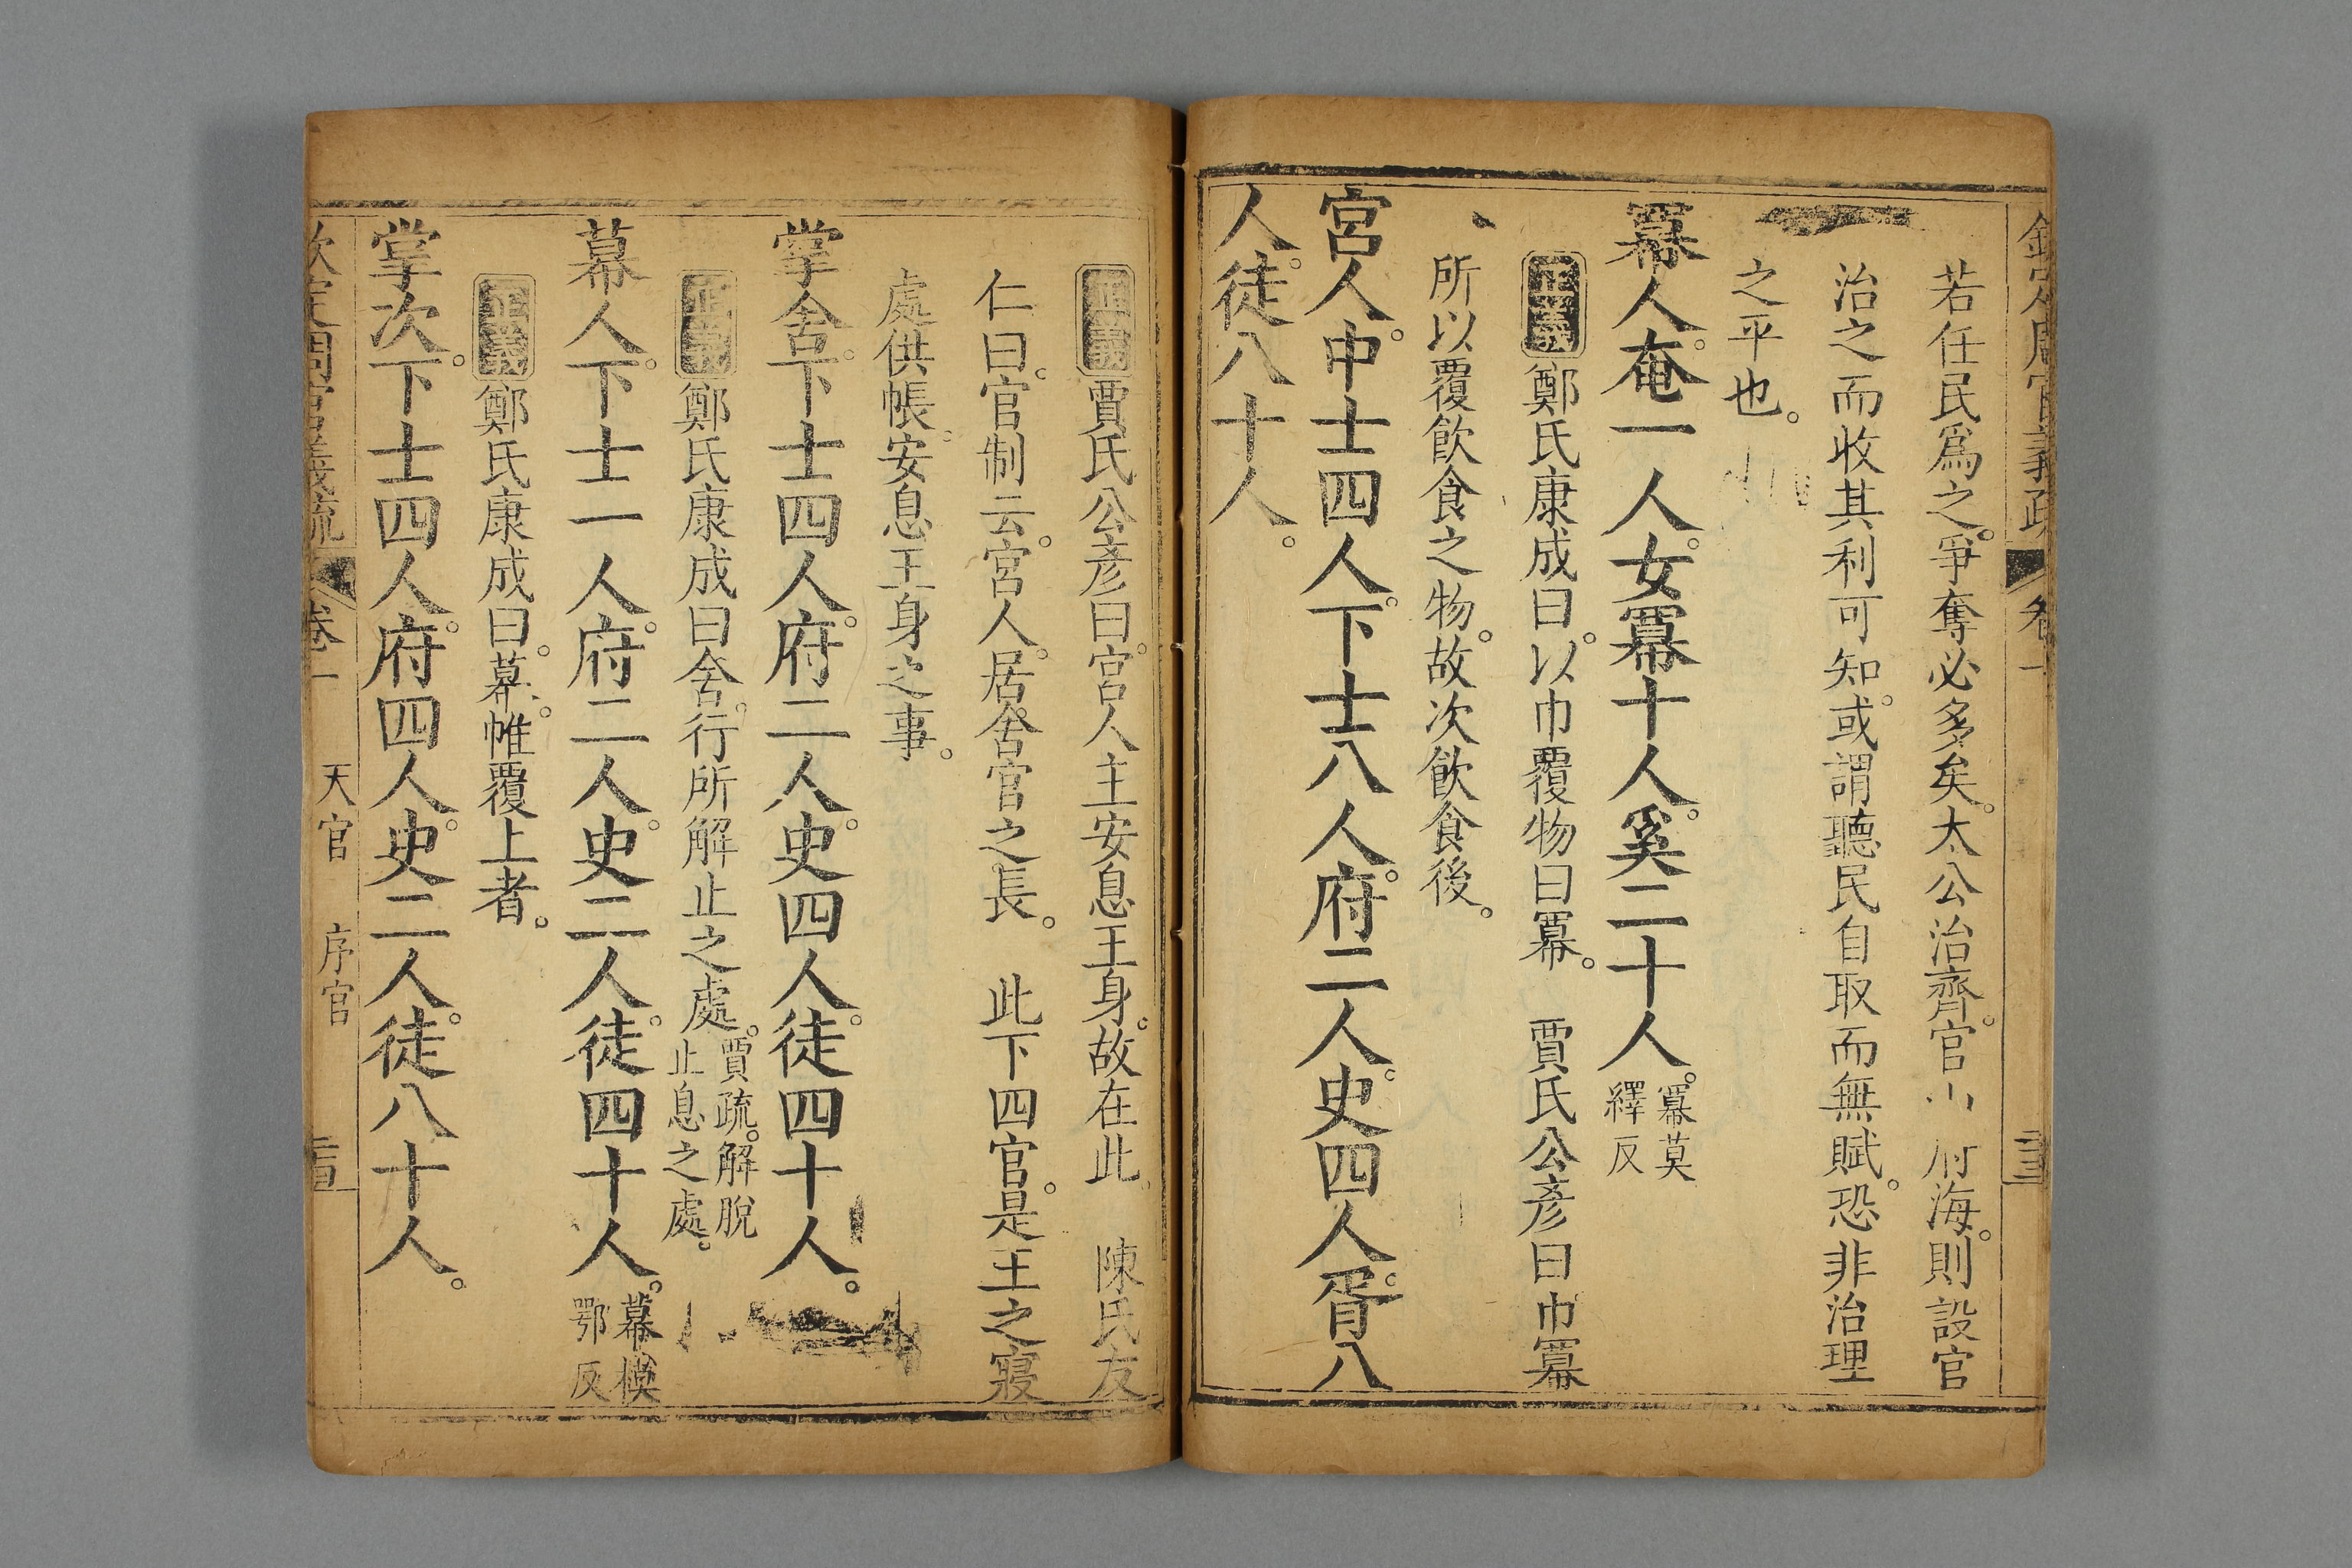 若任民爲之。爭奪必多矣。太公治齊。官山府海。則設官
治之而收其利可知。或謂聽民自取而無賦。恐非治理
之平也。
冪人。奄一人。女冪十人。奚二十人。冪莫繹反
正義鄭氏康成曰。以巾覆物曰冪。 賈氏公彥曰巾冪
所以覆飲食之物。故次飲食後。
宮人。中士四人。下士八人。府二人。史四人。胥八
人。徒八十人。
正義賈氏公彥曰。宮人主安息王身。故在此。 陳氏友
仁曰。官制云。宮人。居舍官之長。 此下四官。是王之寢
處供帳。安息王身之事。
掌舍。下士四人。府二人。史四人。徒四十人。
正義鄭氏康成曰舍。行所解止之處。賈疏。解脫止息之處。
幕人。下士一人。府二人。史二人。徒四十人。幕模鄂反
正義鄭氏康成曰。幕。帷覆上者。
掌次。下士四人。府四人。史二人。徒八十人。
欽定周官義疏 卷一 天官 序官